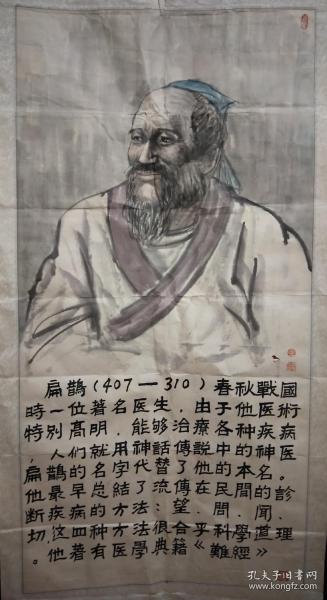 扁鵲(407—310)春秋戰國
時一位著名医生,由于他医術
特别高明,能够治療各种疾病
,人们就用神話傳說中的神医
扁鵲的名字代替了他的本名。
他最早总结了流傳在民間的診
断疾病的方法:望、聞、問、
切,这四种方法很合乎科學道理
。他著有医學典籍《難經》
孔夫子旧书网
www.kongfz.com